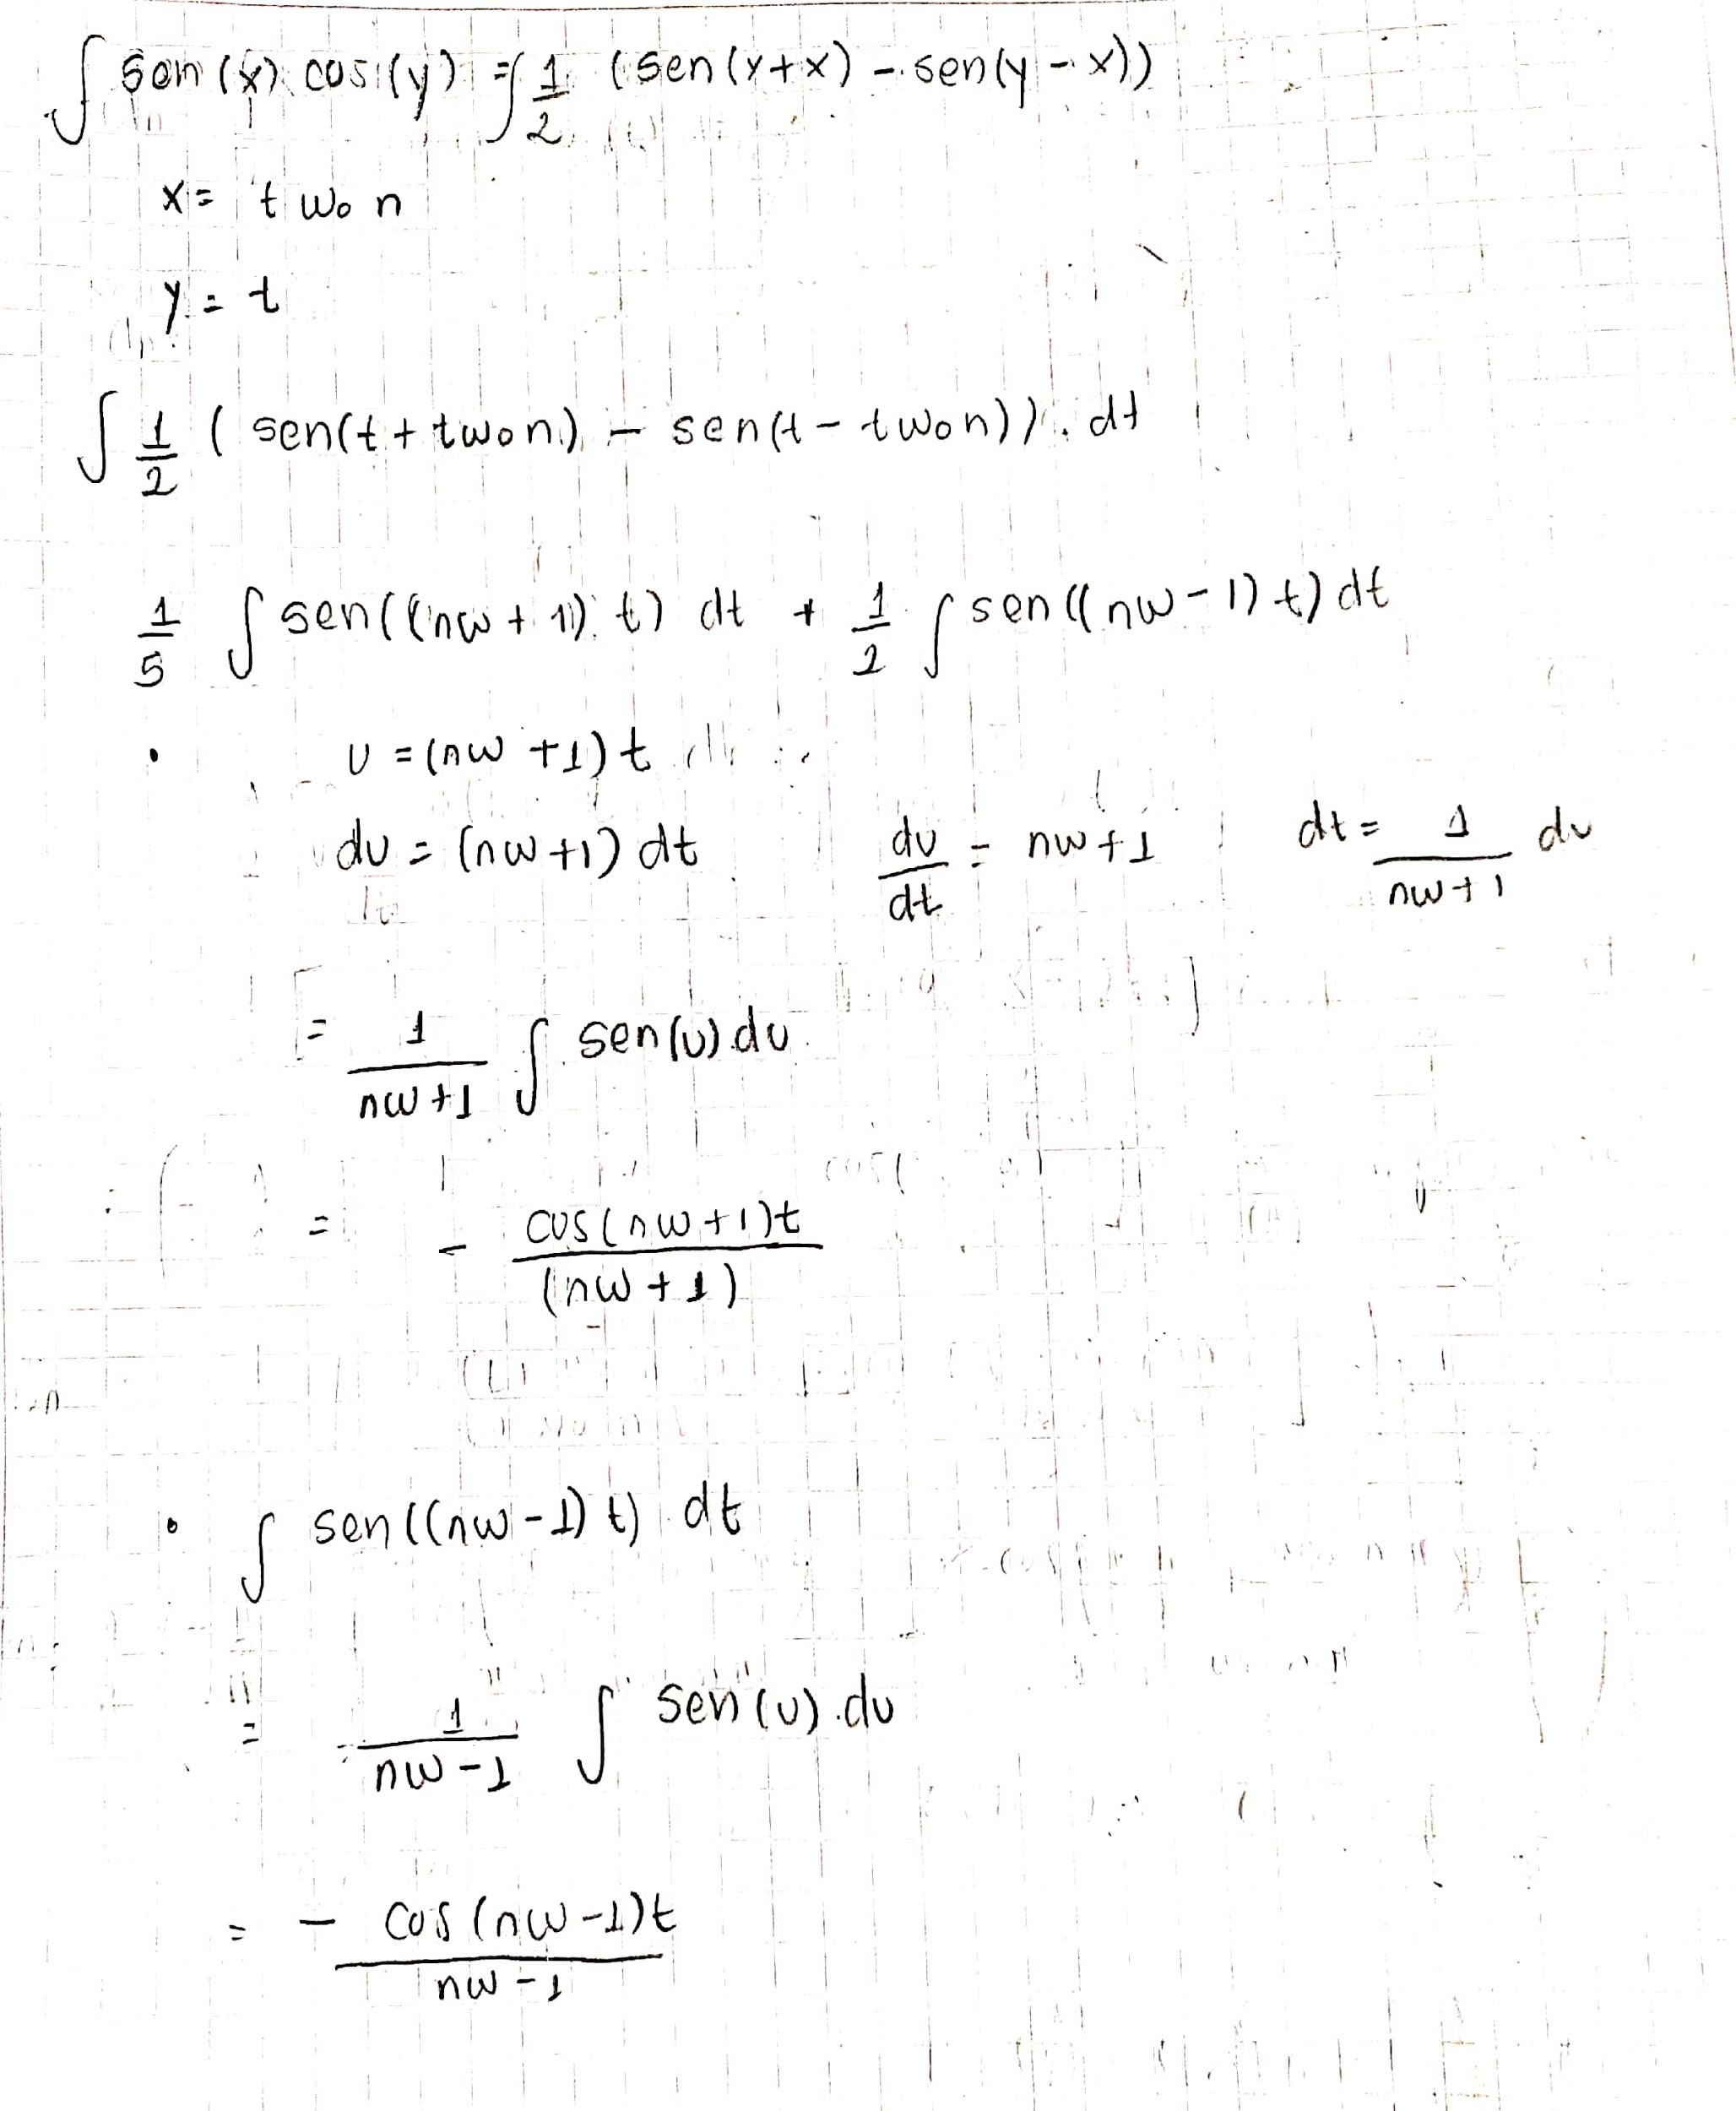 ∫ sen(x) cos(y) = ∫ 1/2 (sen(y+x) - sen(y-x))
x = t w₀ n
y = t
∫ 1/2 (sen(t + t w₀ n) - sen(t - t w₀ n)). dt
1/5 ∫ sen((nw + 1) t) dt + 1/2 ∫ sen((nw - 1) t) dt
• u = (nw + 1) t
du = (nw + 1) dt du/dt = nw + 1 dt = 1/(nw + 1) du
= 1/(nw + 1) ∫ sen(u) du
= - cos(nw + 1)t/(nw + 1)
• ∫ sen((nw - 1) t) dt
= 1/(nw - 1) ∫ sen(u).du
= - cos(nw - 1)t/(nw - 1)